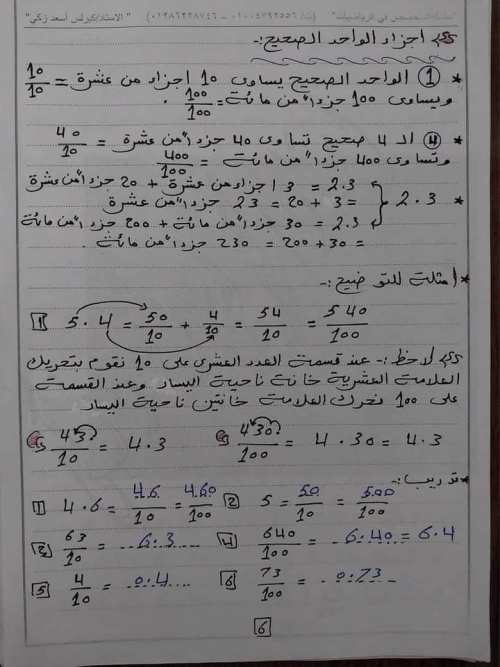 "سلسلة المتخصص في الرياضيات" (ت/ ٠١٠٠٤٧٩٢٥٥٦ – ٠١٢٨٦٢٣٨٧٤٦) "الاستاذ/كيرلس أسعد زكي"
اجزاء الواحد الصحيح:-
* ① الواحد الصحيح يساوى 10 اجزاء من عشرة = 10/10
ويساوى 100 جزءاً من مائة = 100/100 .
* ④ الـ 4 صحيح تساوى 40 جزءاً من عشرة = 40/10
وتساوى 400 جزءاً من مائة = 400/100
* 2.3 { 2.3 = 3 اجزاء من عشرة + 20 جزءاً من عشرة
= 3 + 20 = 23 جزءاً من عشرة
2.3 = 30 جزءاً من مائة + 200 جزءاً من مائة
= 30 + 200 = 230 جزءاً من مائة .
* أمثلة للتوضيح:-
1 5.4 = 50/10 + 4/10 = 54/10 = 540/100
لاحظ:- عند قسمة العدد العشرى على 10 نقوم بتحريك
العلامة العشرية خانة ناحية اليسار وعند القسمة
على 100 نحرك العلامة خانتين ناحية اليسار
43/10 = 4.3 430/100 = 4.30 = 4.3
* تدريب:-
1 4.6 = 46/10 = 460/100 2 5 = 50/10 = 500/100
3 63/10 = 6.3 4 640/100 = 6.40 = 6.4
5 4/10 = 0.4 6 73/100 = 0.73
6